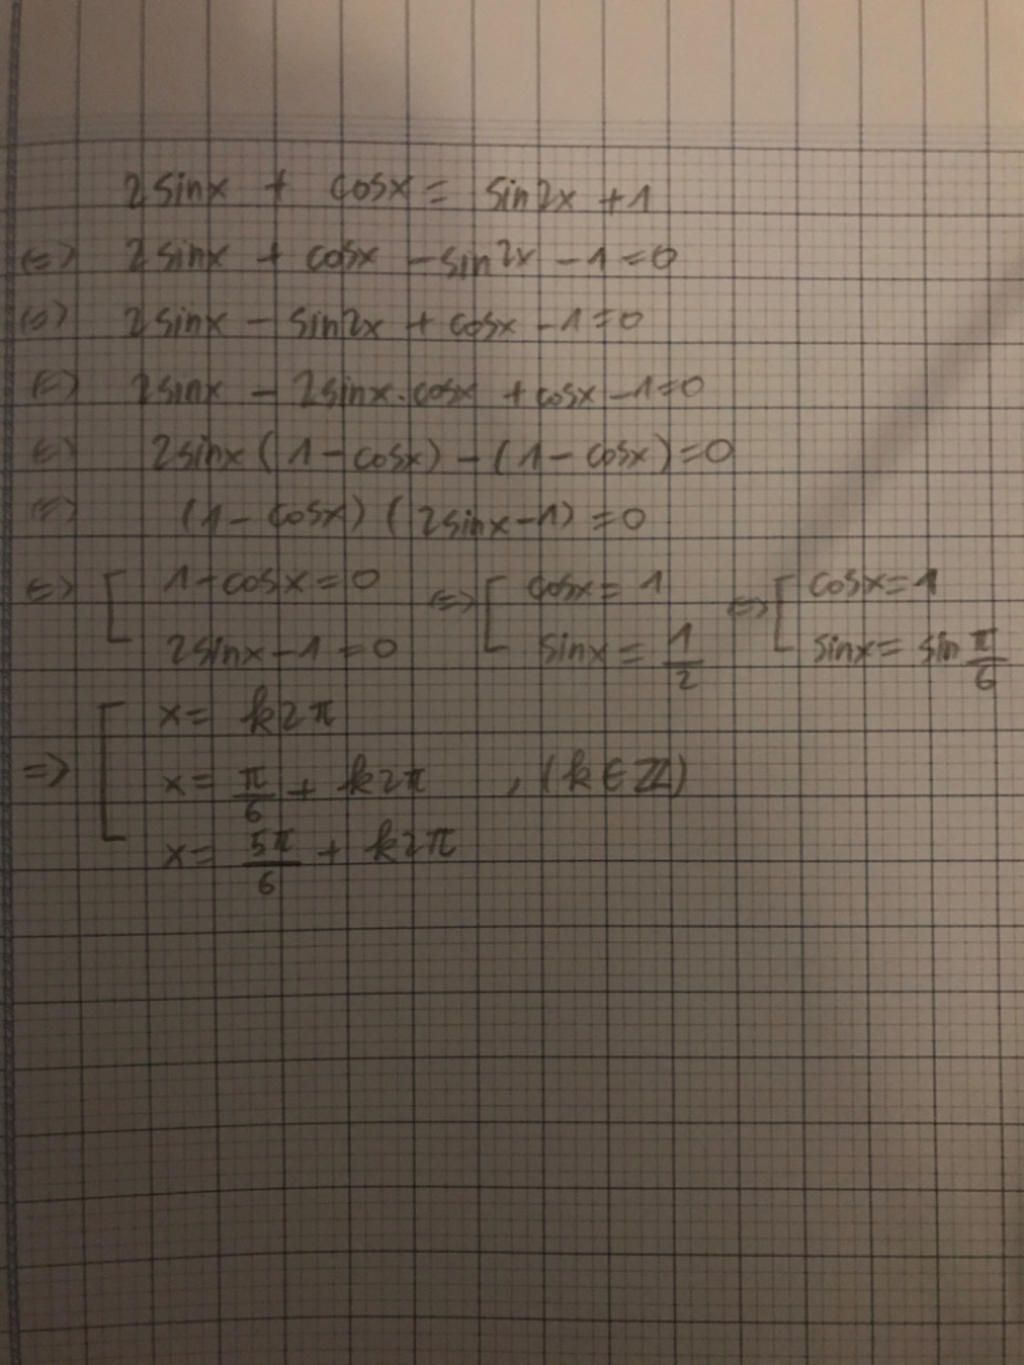 2sinx + cosx = sin2x + 1
<=> 2sinx + cosx - sin2x - 1 = 0
<=> 2sinx - sin2x + cosx - 1 = 0
<=> 2sinx - 2sinx.cosx + cosx - 1 = 0
<=> 2sinx (1 - cosx) - (1 - cosx) = 0
<=> (1 - cosx) (2sinx - 1) = 0
<=> [ 1 - cosx = 0 <=> [ cosx = 1 <=> [ cosx = 1
2sinx - 1 = 0 sinx = 1/2 sinx = sin π/6
=> [ x = k2π
x = π/6 + k2π , (k ∈ ℤ)
x = 5π/6 + k2π